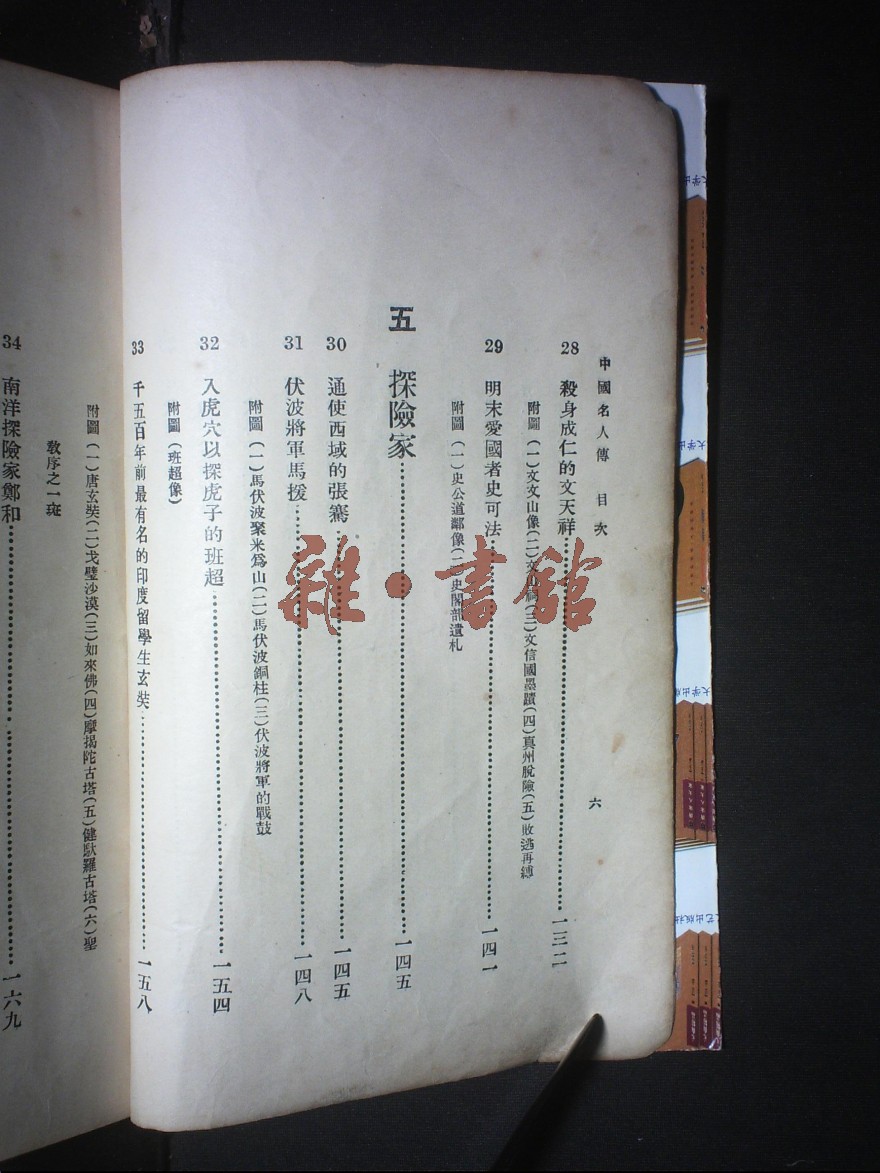 中國名人傳 目次 六
28 殺身成仁的文天祥……一三二
附圖(一)文文山像(二)文山祠(三)文信國墨蹟(四)真州脫險(五)敗逃再縛
29 明末愛國者史可法……一四一
附圖(一)史公道鄰像(二)史閣部遺札
五 探險家……一四五
30 通使西域的張騫……一四五
31 伏波將軍馬援……一四八
附圖(一)馬伏波聚米爲山(二)馬伏波銅柱(三)伏波將軍的戰鼓
32 入虎穴以探虎子的班超……一五四
附圖(班超像)
33 千五百年前最有名的印度留學生玄奘……一五八
附圖(一)唐玄奘(二)戈壁沙漠(三)如來佛(四)摩揭陀古塔(五)健馱羅古塔(六)聖
教序之一斑
34 南洋探險家鄭和……一六九
雜·書館